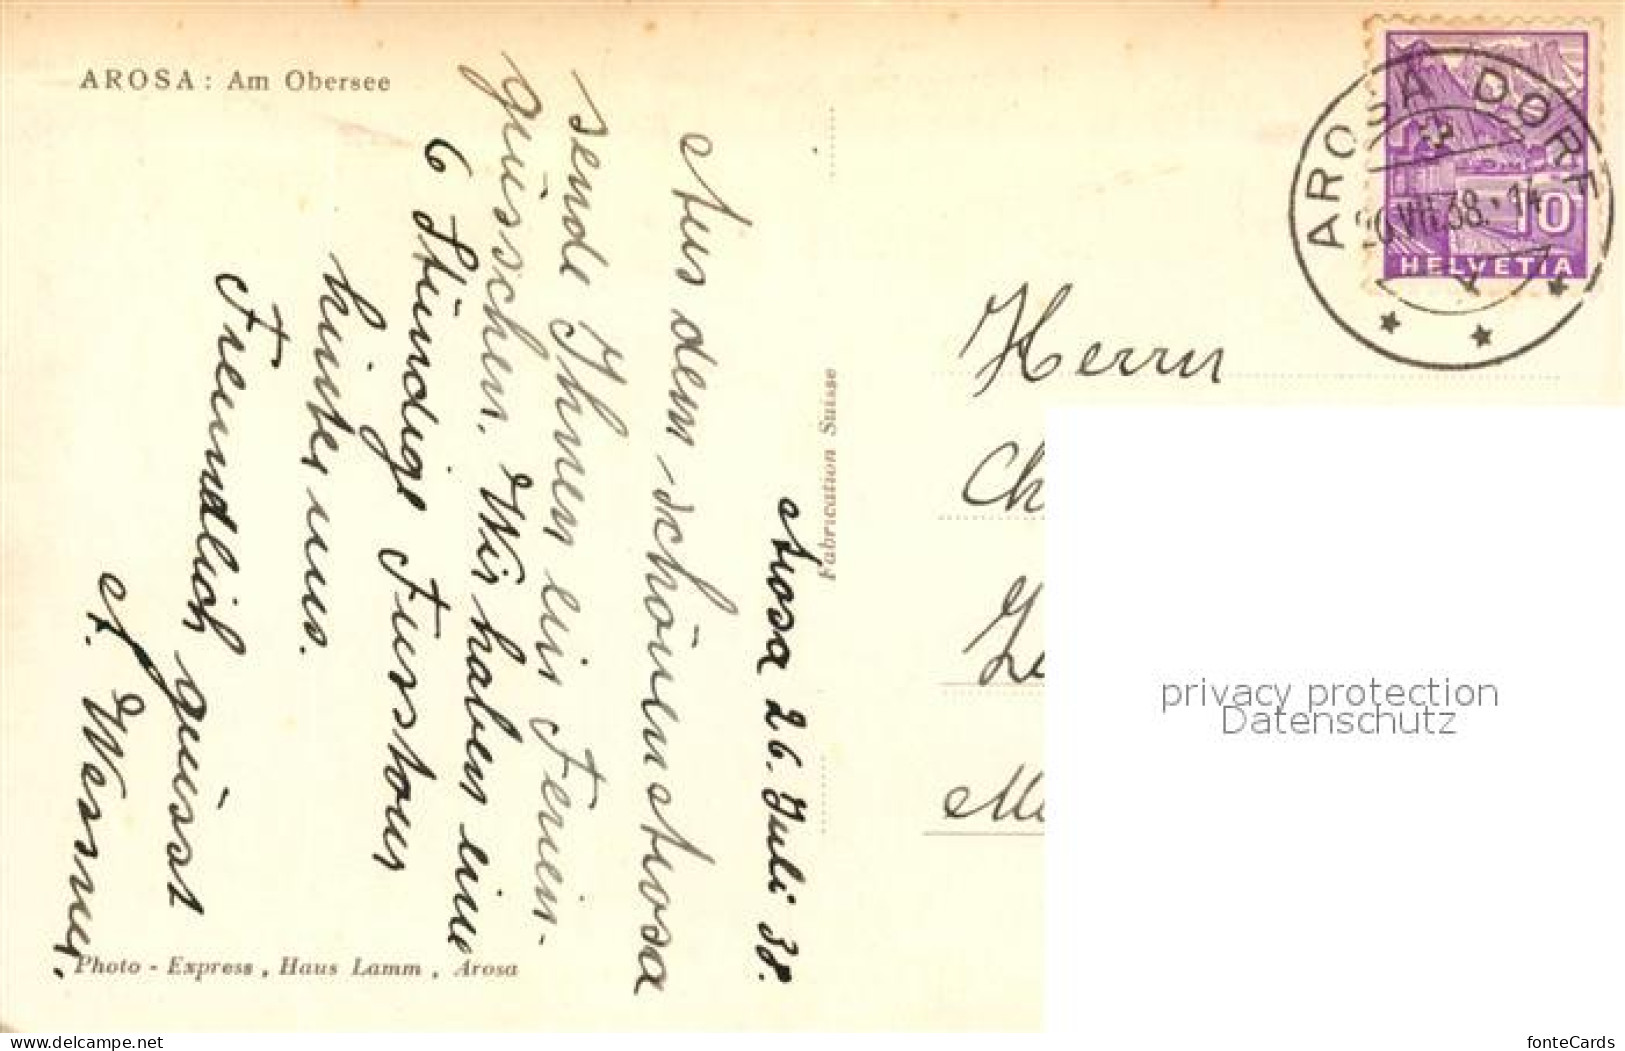 AROSA : Am Obersee
Arosa 26. Juli 38.
Aus dem schönen Arosa
sende Ihnen ein Ferien-
grüsschen. Wir haben eine
6 Stündige Fusstour
hinter uns.
Freundlich grüsst
A. Wessner.
Photo - Express , Haus Lamm , Arosa
Fabrication Suisse
AROSA DORF
VII.38.-14
10
HELVETIA
Herrn
Ch
privacy protection
Datenschutz
www.delcampe.net
fonteCards